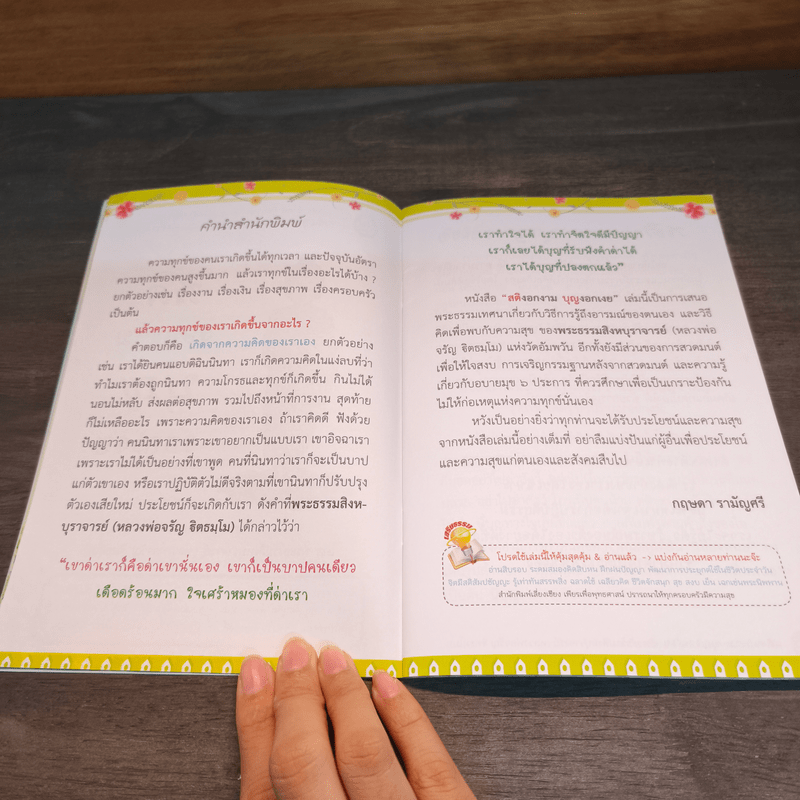 คำนำสำนักพิมพ์
ความทุกข์ของคนเราเกิดขึ้นได้ทุกเวลา และปัจจุบันอัตรา
ความทุกข์ของคนสูงขึ้นมาก แล้วเราทุกข์ในเรื่องอะไรได้บ้าง ?
ยกตัวอย่างเช่น เรื่องงาน เรื่องเงิน เรื่องสุขภาพ เรื่องครอบครัว
เป็นต้น
แล้วความทุกข์ของเราเกิดขึ้นจากอะไร ?
คำตอบก็คือ เกิดจากความคิดของเราเอง ยกตัวอย่าง
เช่น เราได้ยินคนแอบติฉินนินทา เราก็เกิดความคิดในแง่ลบที่ว่า
ทำไมเราต้องถูกนินทา ความโกรธและทุกข์ก็เกิดขึ้น กินไม่ได้
นอนไม่หลับ ส่งผลต่อสุขภาพ รวมไปถึงหน้าที่การงาน สุดท้าย
ก็ไม่เหลืออะไร เพราะความคิดของเราเอง ถ้าเราคิดดี ฟังด้วย
ปัญญาว่า คนนินทาเราเพราะเขาอยากเป็นแบบเรา เขาอิจฉาเรา
เพราะเราไม่ได้เป็นอย่างที่เขาพูด คนที่นินทาว่าเราก็จะเป็นบาป
แก่ตัวเขาเอง หรือเราปฏิบัติตัวไม่ดีจริงตามที่เขานินทาก็ปรับปรุง
ตัวเองเสียใหม่ ประโยชน์ก็จะเกิดกับเรา ดังคำที่พระธรรมสิงห-
บุราจารย์ (หลวงพ่อจรัญ ฐิตธมฺโม) ได้กล่าวไว้ว่า
“เขาด่าเราก็คือด่าเขานั่นเอง เขาก็เป็นบาปคนเดียว
เดือดร้อนมาก ใจเศร้าหมองที่ด่าเรา
เราทำใจได้ เราทำจิตใจดีมีปัญญา
เราก็เลยได้บุญที่รับฟังคำด่าได้
เราได้บุญที่ปลงตกแล้ว”
หนังสือ “สติงอกงาม บุญงอกเงย” เล่มนี้เป็นการเสนอ
พระธรรมเทศนาเกี่ยวกับวิธีการรู้ถึงอารมณ์ของตนเอง และวิธี
คิดเพื่อพบกับความสุข ของพระธรรมสิงหบุราจารย์ (หลวงพ่อ
จรัญ ฐิตธมฺโม) แห่งวัดอัมพวัน อีกทั้งยังมีส่วนของการสวดมนต์
เพื่อให้ใจสงบ การเจริญกรรมฐานหลังจากสวดมนต์ และความรู้
เกี่ยวกับอบายมุข ๖ ประการ ที่ควรศึกษาเพื่อเป็นเกราะป้องกัน
ไม่ให้ก่อเหตุแห่งความทุกข์นั่นเอง
หวังเป็นอย่างยิ่งว่าทุกท่านจะได้รับประโยชน์และความสุข
จากหนังสือเล่มนี้อย่างเต็มที่ อย่าลืมแบ่งปันแก่ผู้อื่นเพื่อประโยชน์
และความสุขแก่ตนเองและสังคมสืบไป
กฤษดา รามัญศรี
เสริมธรรม
โปรดใช้เล่มนี้ให้คุ้มสุดคุ้ม & อ่านแล้ว -> แบ่งกันอ่านหลายท่านนะจ๊ะ
อ่านสิบรอบ ระดมสมองคิดสิบหน ฝึกฝนปัญญา พัฒนาการประยุกต์ใช้ในชีวิตประจำวัน
จิตมีสติสัมปชัญญะ รู้เท่าทันสรรพสิ่ง ฉลาดใช้ เฉลียวคิด ชีวิตจักสนุก สุข สงบ เย็น
สำนักพิมพ์เลี่ยงเชียง เพียรเพื่อพุทธศาสน์ ปรารถนาให้ทุกครอบครัวมีความสุข